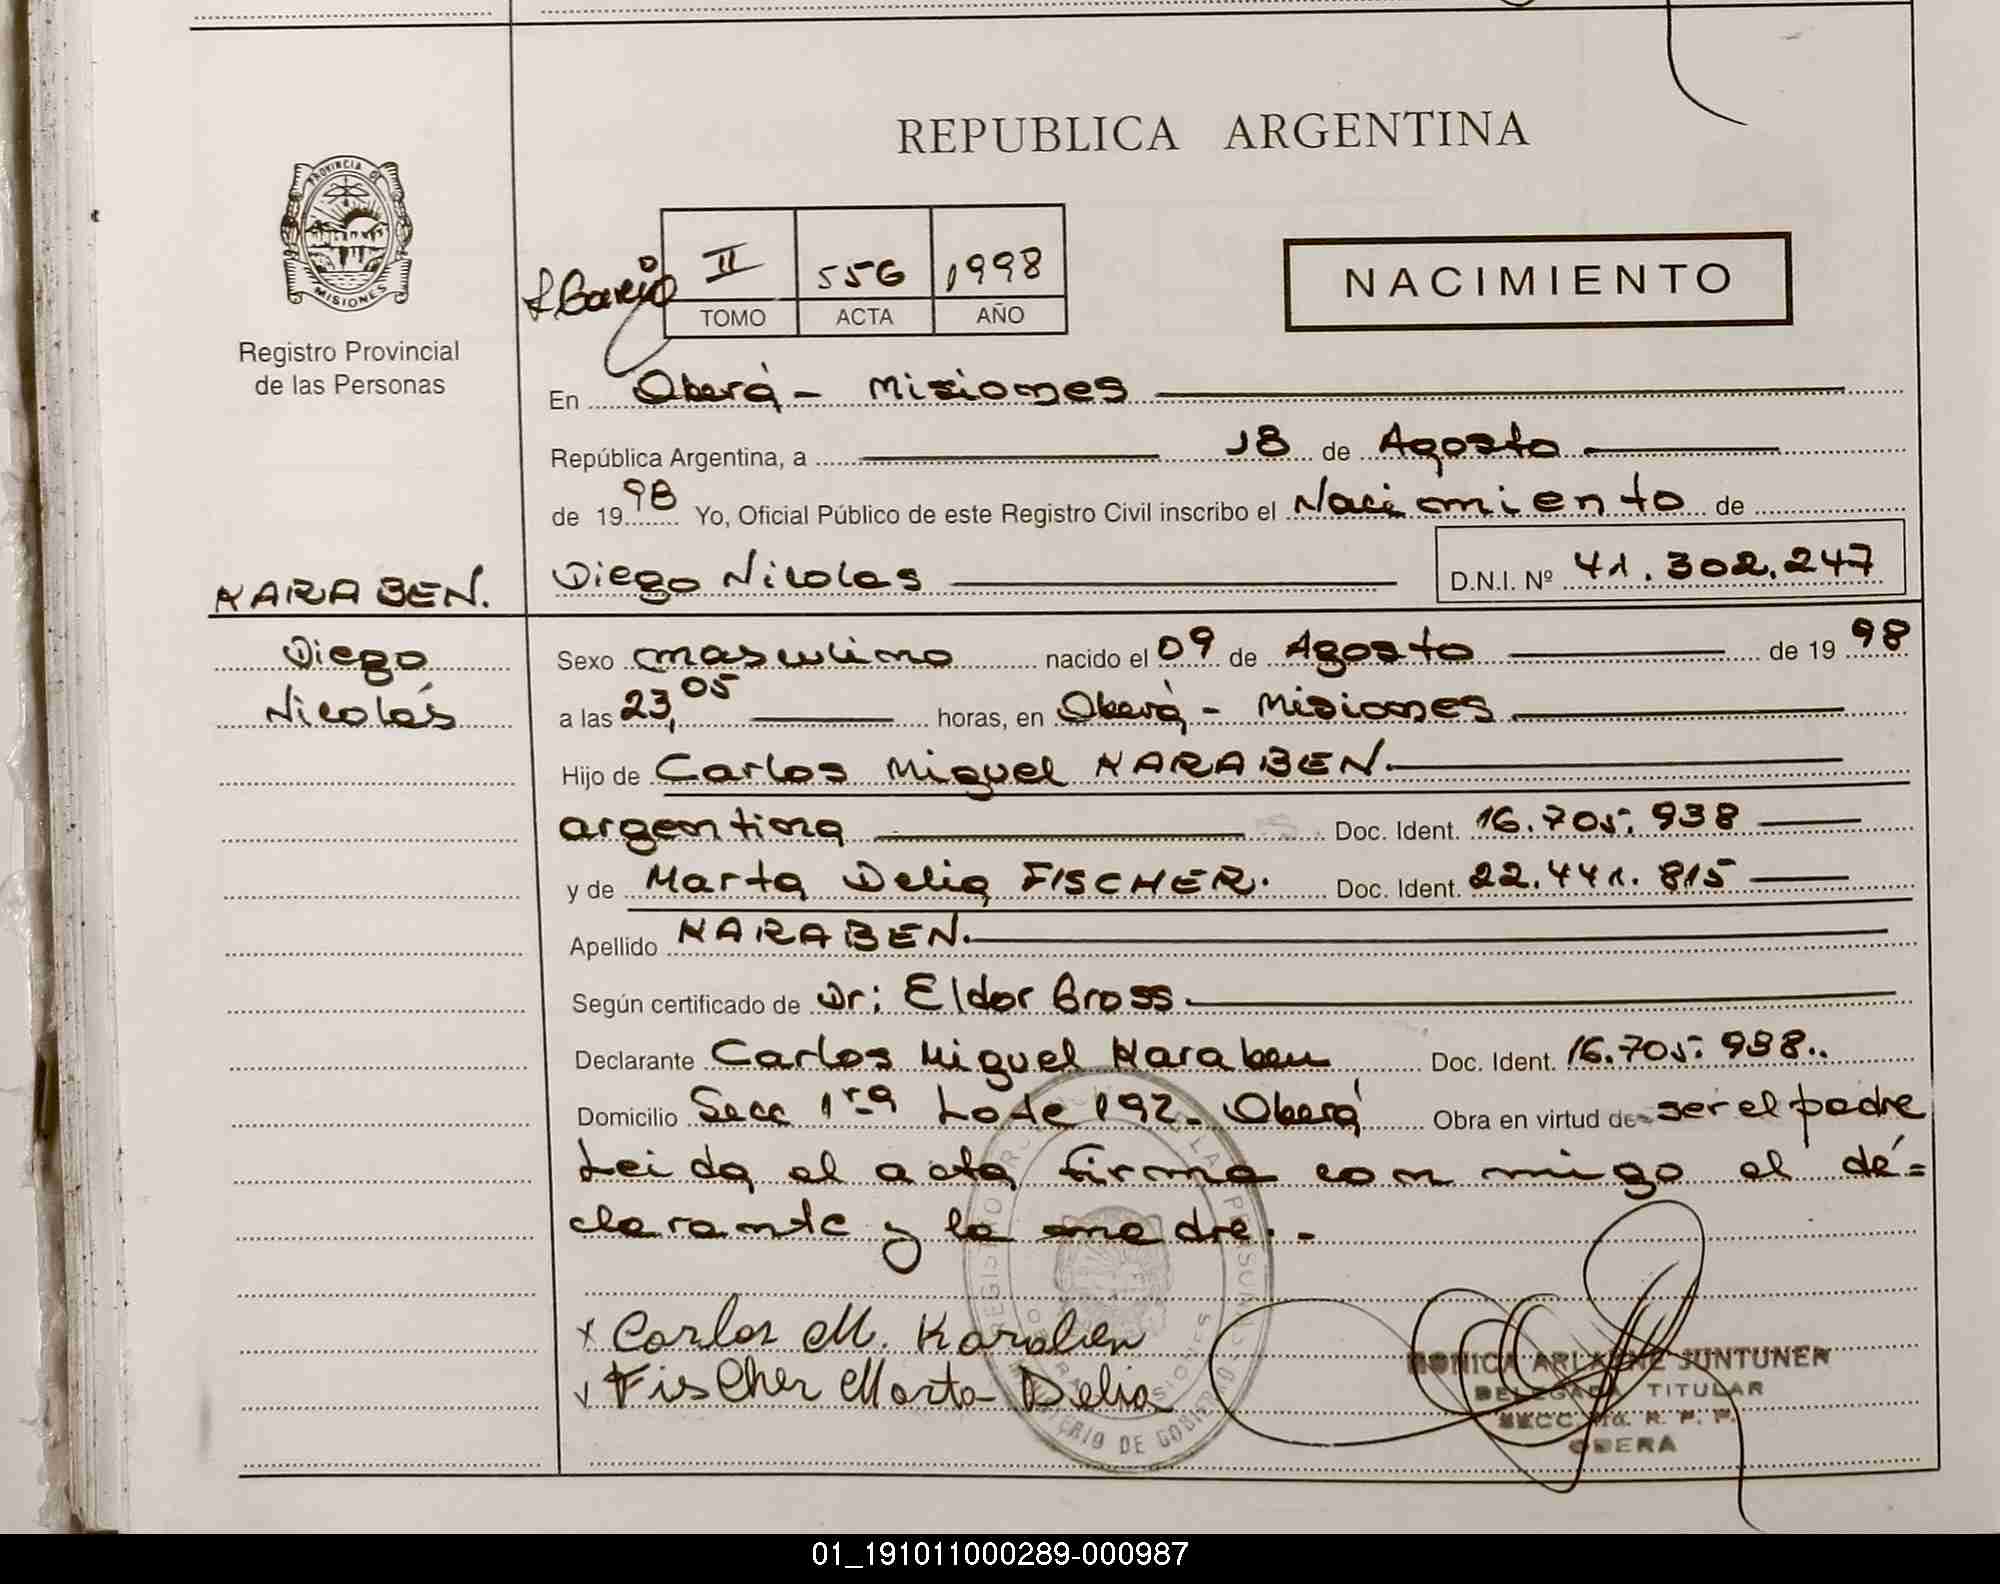 REPUBLICA ARGENTINA
PROVINCIA DE
MISIONES
Registro Provincial
de las Personas
II 556 1998
TOMO ACTA AÑO
NACIMIENTO
En Oberá - Misiones
República Argentina, a 18 de Agosto
de 1998 Yo, Oficial Público de este Registro Civil inscribo el Nacimiento de
Diego Nicolas D.N.I. Nº 41.302.247
KARABEN.
Diego
Nicolás
Sexo masculino nacido el 09 de Agosto de 1998
a las 23,05 horas, en Oberá - Misiones
Hijo de Carlos Miguel KARABEN.
argentina Doc. Ident. 16.705.938
y de Marta Delia FISCHER. Doc. Ident. 22.441.815
Apellido KARABEN.
Según certificado de Dr: Eldor Gross.
Declarante Carlos Miguel Karaben Doc. Ident. 16.705.938..
Domicilio Secc 1ra Lote 192- Oberá Obra en virtud de ser el padre
Leida el acta firma con migo el de=
clarante y la madre.-
x Carlos M. Karaben
Fischer Marta Delia
MONICA ARLAENE JUNTUNEN
DELEGADA TITULAR
SECC. 1ra. R. P. P.
OBERA
MINISTERIO DE GOBIERNO
01_191011000289-000987